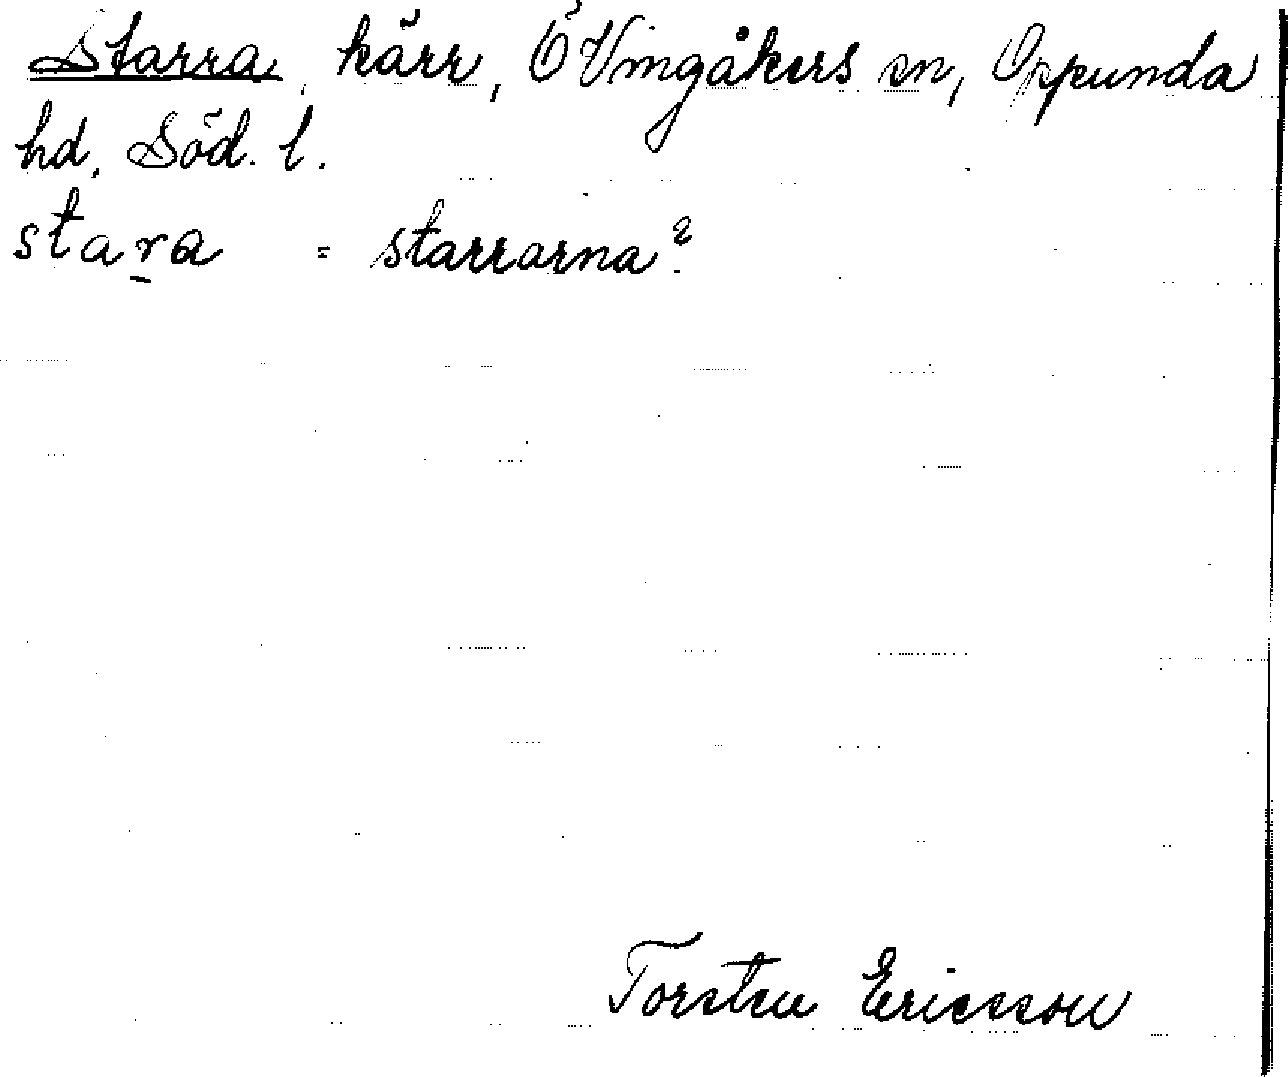 Starra, kärr, Ö Vingåkers sn, Oppunda
hd, Söd. l.
stara = starrarna?
Torsten Ericsson